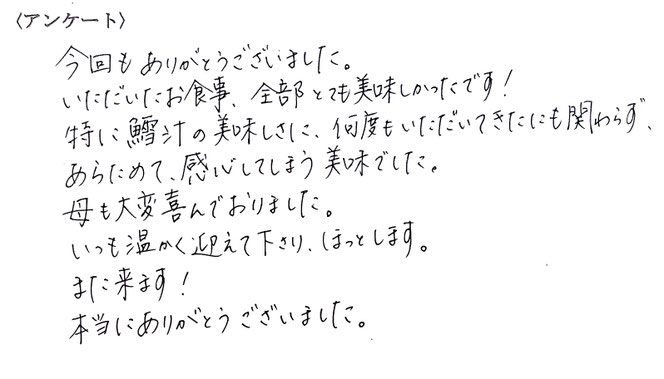 〈アンケート〉
今回もありがとうございました。
いただいたお食事、全部とても美味しかったです！
特に鱈汁の美味しさに、何度もいただいてきたにも関わらず、
あらためて、感心してしまう美味でした。
母も大変喜んでおりました。
いつも温かく迎えて下さり、ほっとします。
また来ます！
本当にありがとうございました。